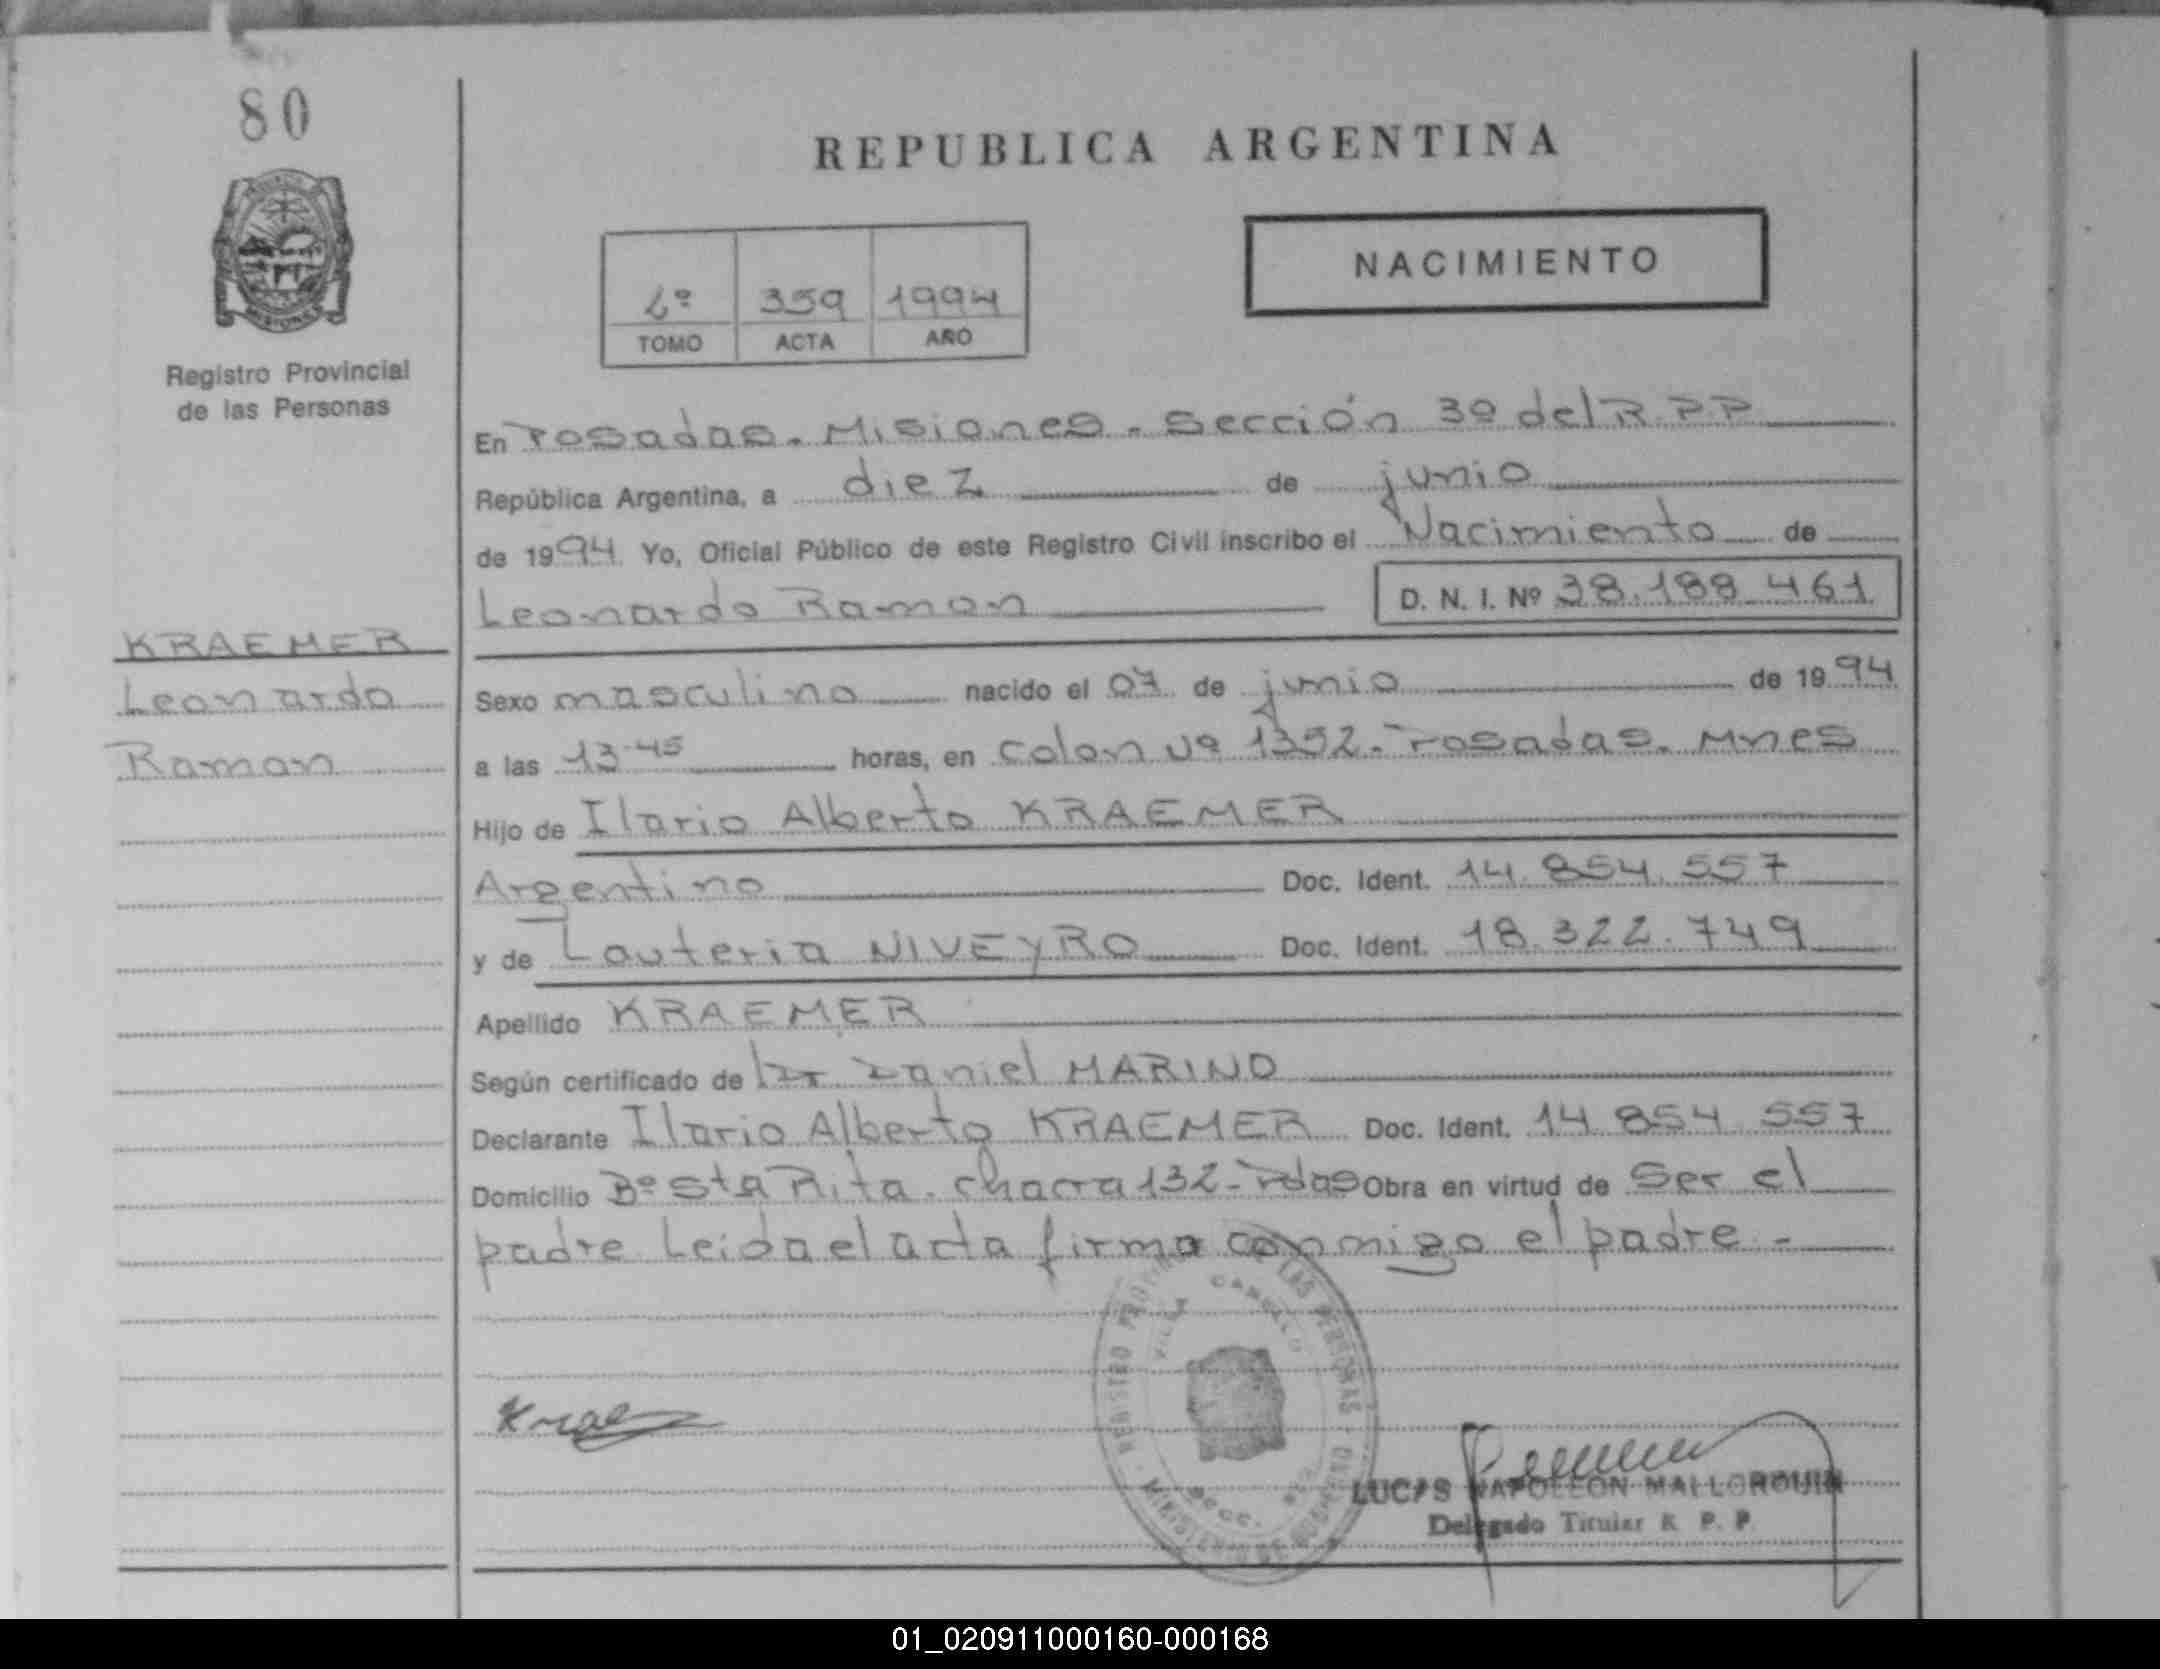 80
REPUBLICA ARGENTINA
NACIMIENTO
MISIONES
Registro Provincial
de las Personas
359 1994
TOMO ACTA AÑO
En Posadas. Misiones. Sección 3º del R.P.P
República Argentina, a diez de junio
de 1994 Yo, Oficial Público de este Registro Civil inscribo el Nacimiento de
Leonardo Ramon D. N. I. Nº 38.188.461
KRAEMER
Leonardo
Ramon
Sexo masculino nacido el 07 de junio de 1994
a las 13.45 horas, en Colon Nº 1352. Posadas. Mnes
Hijo de Ilario Alberto KRAEMER
Argentino Doc. Ident. 14.854.557
y de Lauteria NIVEYRO Doc. Ident. 18.322.749
Apellido KRAEMER
Según certificado de Dr Daniel MARINO
Declarante Ilario Alberto KRAEMER Doc. Ident. 14.854.557
Domicilio Bº Sta Rita. Chacra 132-Pdas Obra en virtud de Ser el
padre Leida el acta firma conmigo el padre.-
REGISTRO PROVINCIAL DE LAS PERSONAS
MINISTERIO DE GOBIERNO
VILLA CABELLO
SECC.
LUCAS NAPOLEON MALLORQUIN
Delegado Titular R. P. P.
01_020911000160-000168